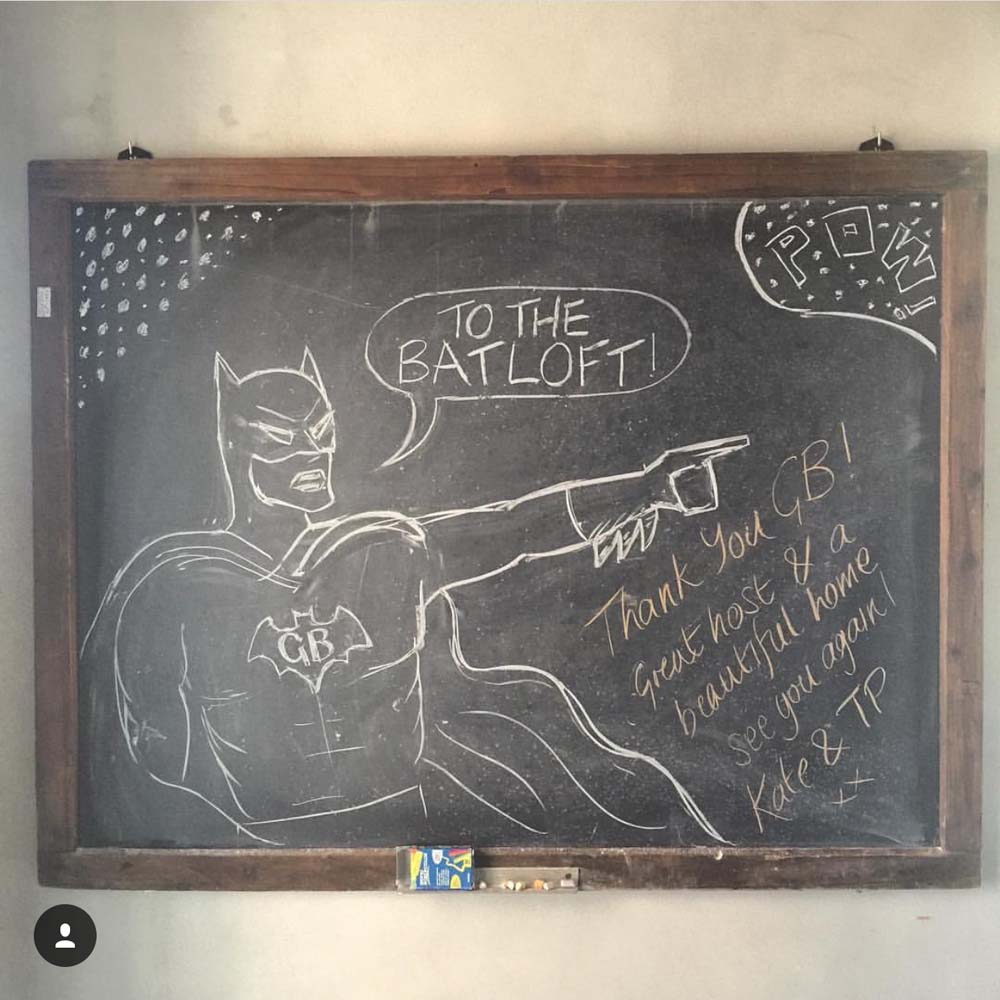 POW!
TO THE
BATLOFT!
GB
Thank You GB!
Great host & a
beautiful home
see you again!
Kate & TP
xx